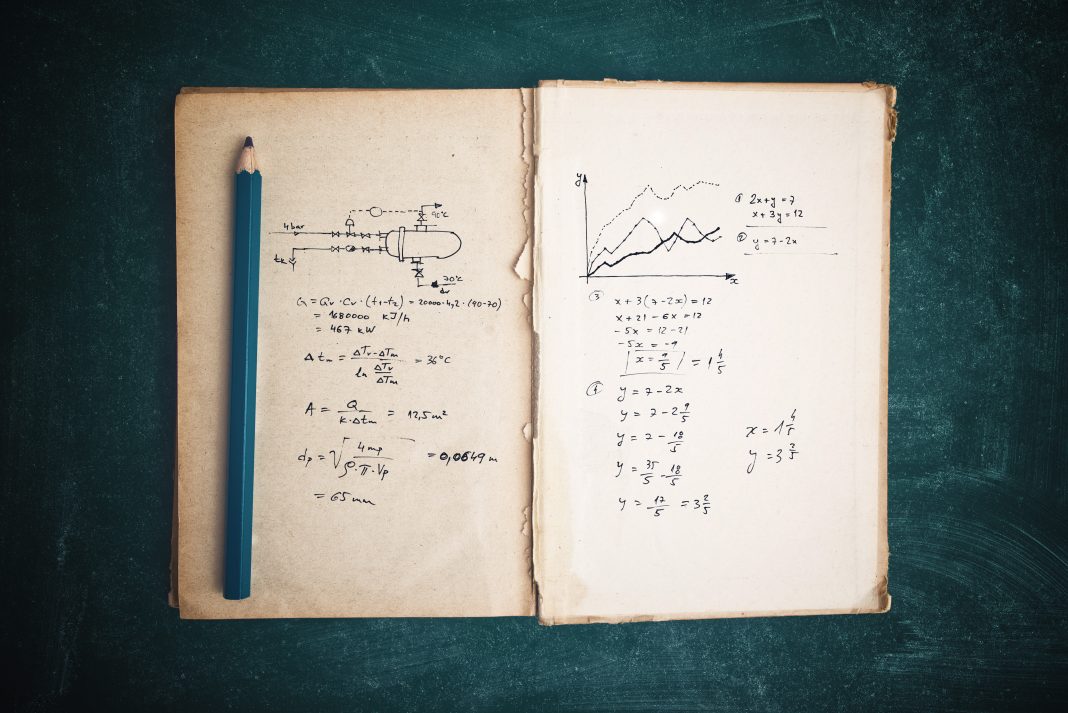 4 bar
90°C
tk
70°C
Δv
Q = Qv · Cv · (t1-t2) = 20000·4,2·(90-70)
= 1680000 KJ/h
= 467 kW
Δtm = ΔTv-ΔTm / ln ΔTv/ΔTm = 36°C
A = Q / K·Δtm = 12,5 m²
dp = √ 4mp / ρ·π·Vp = 0,0649 m
= 65 mm
y
x
① 2x+y = 7
x + 3y = 12
② y = 7-2x
③ x + 3(7-2x) = 12
x + 21 - 6x = 12
-5x = 12-21
-5x = -9
x = 9/5 = 1 4/5
④ y = 7-2x
y = 7-2 9/5
y = 7 - 18/5
y = 35/5 - 18/5
y = 17/5 = 3 2/5
x = 1 4/5
y = 3 2/5